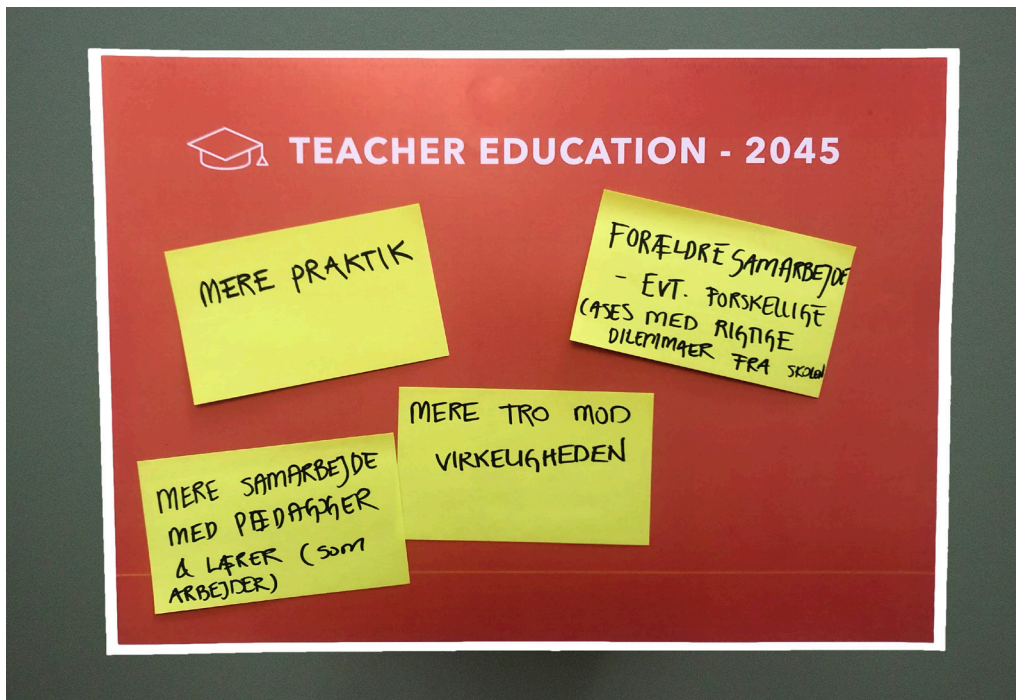 TEACHER EDUCATION - 2045
MERE PRAKTIK
FORÆLDRESAMARBEJDE
- EVT. FORSKELLIGE
CASES MED RIGTIGE
DILEMMAER FRA SKOLEN
MERE TRO MOD
VIRKELIGHEDEN
MERE SAMARBEJDE
MED PÆDAGOGER
& LÆRER (SOM
ARBEJDER)